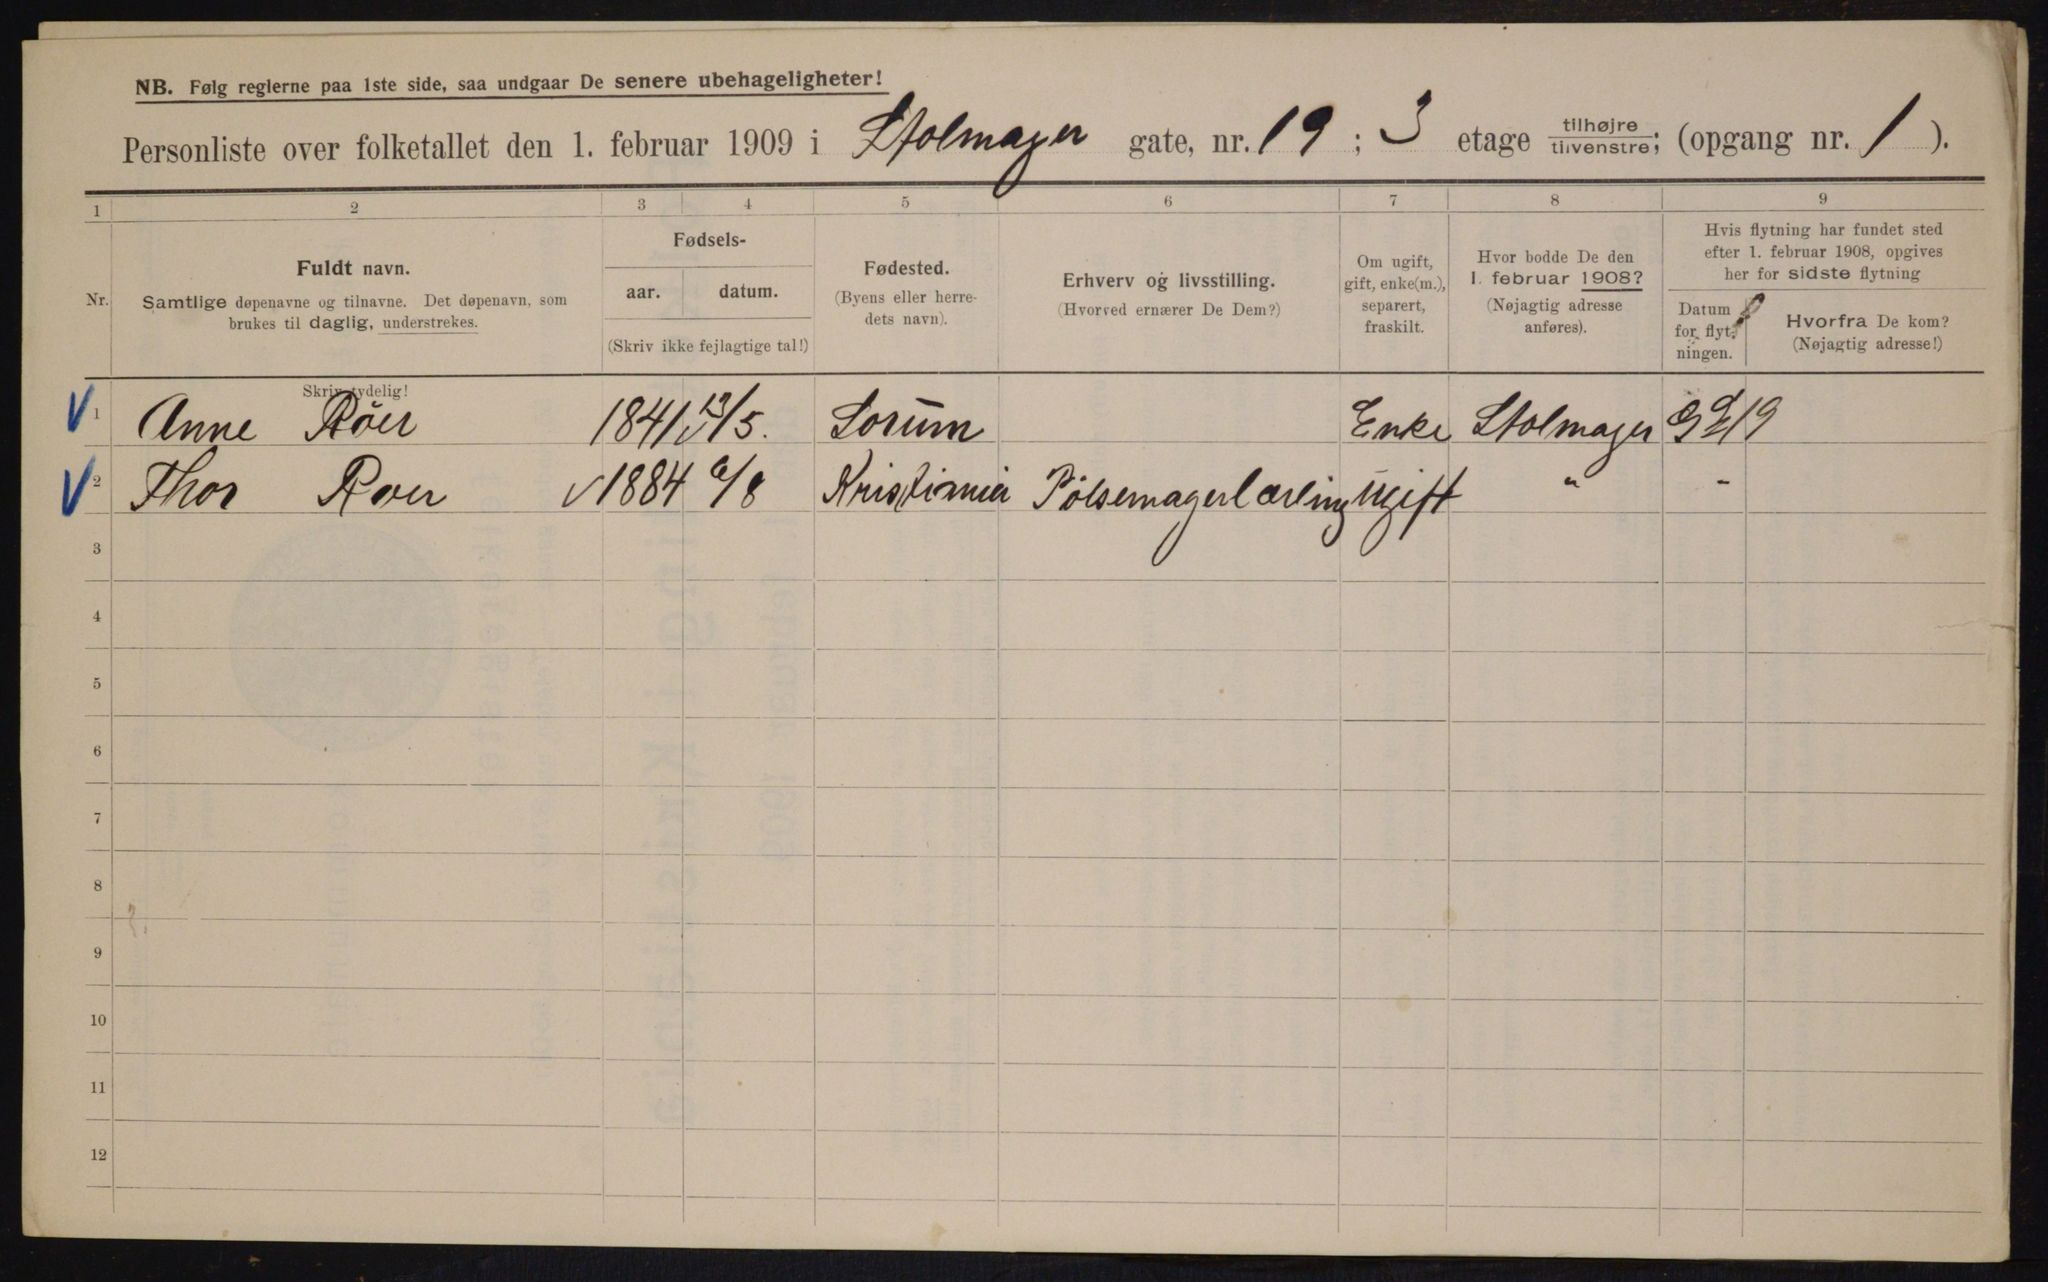 NB. Følg reglerne paa 1ste side, saa undgaar De senere ubehageligheter!
Personliste over folketallet den 1. februar 1909 i Stolmager gate, nr. 19; 3 etage tilhøjre tilvenstre; (opgang nr. 1).
1 2 3 4 5 6 7 8 9
Nr.
Fuldt navn.
Samtlige døpenavne og tilnavne. Det døpenavn, som
brukes til daglig, understrekes.
Fødsels-
aar. datum.
(Skriv ikke fejlagtige tal!)
Fødested.
(Byens eller herre-
dets navn).
Erhverv og livsstilling.
(Hvorved ernærer De Dem?)
Om ugift,
gift, enke(m.),
separert,
fraskilt.
Hvor bodde De den
1. februar 1908?
(Nøjagtig adresse
anføres).
Hvis flytning har fundet sted
efter 1. februar 1908, opgives
her for sidste flytning
Datum
for flyt-
ningen.
Hvorfra De kom?
(Nøjagtig adresse!)
Skriv tydelig!
1 Anne Röer 1841 /5. Sorum Enke Stolmager 19
2 Thor Roer 1884 6/8 Kristiania Pölsemagerlærling Ugift " "
3
4
5
6
7
8
9
10
11
12